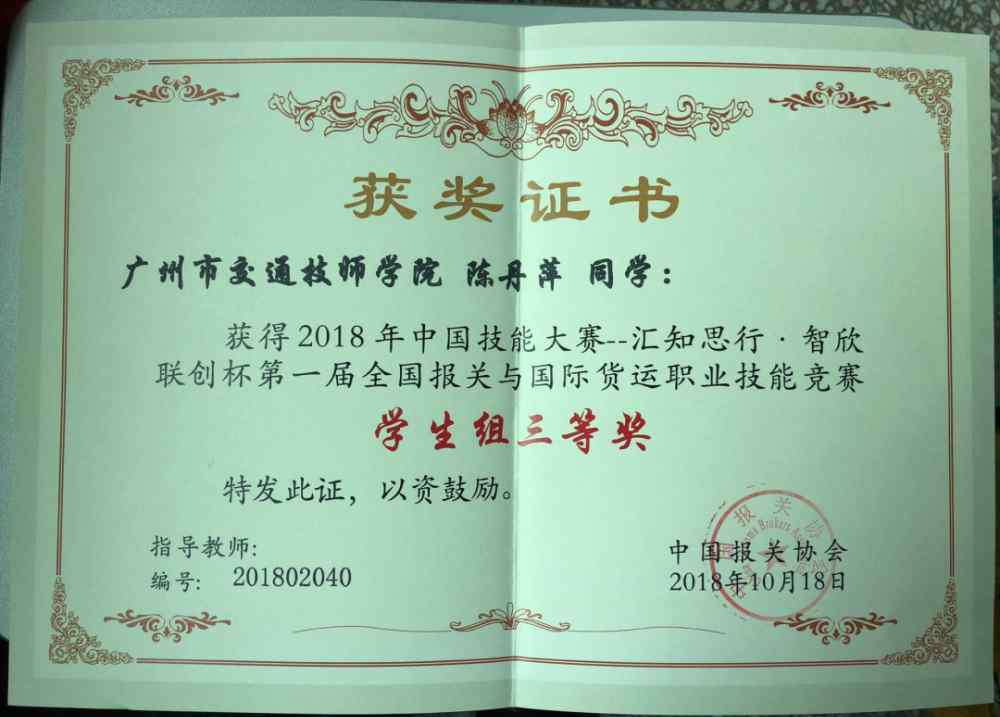 获奖证书
广州市交通技师学院 陈丹萍 同学：
获得2018年中国技能大赛--汇知思行·智欣
联创杯第一届全国报关与国际货运职业技能竞赛
学生组三等奖
特发此证，以资鼓励。
指导教师:
编号: 201802040
中国报关协会
2018年10月18日